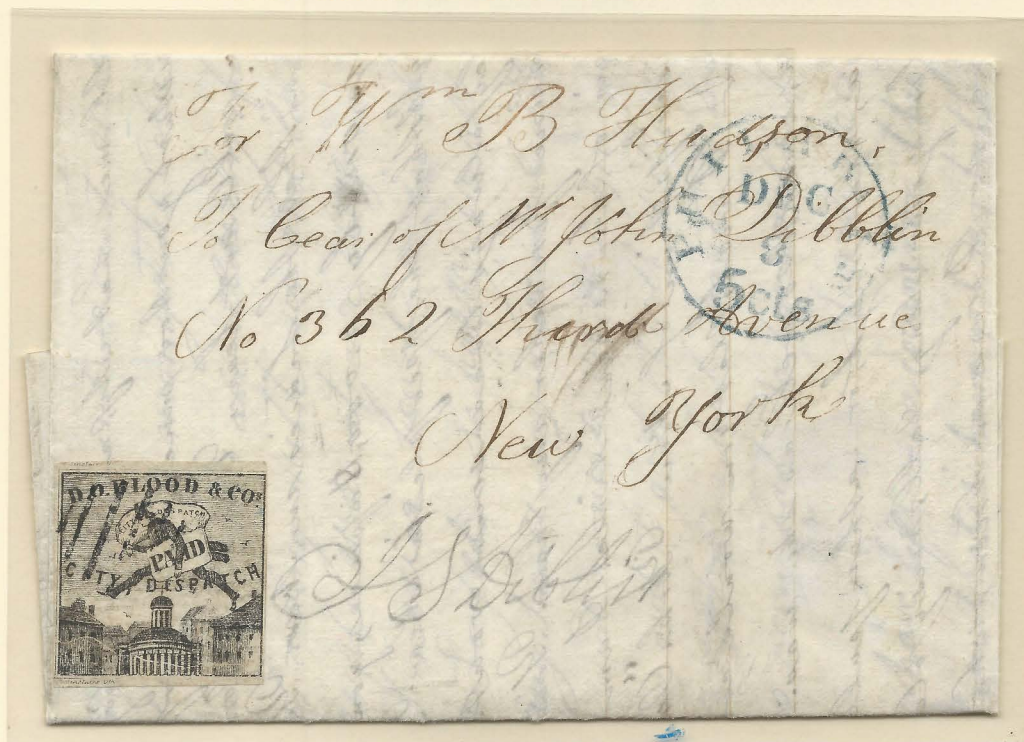 For Wm B Hudson,
To Cear of Mr John Dibblin
No 362 Therd Avenue
New York
J S Diblin
DEC
8
5cts
D.O. BLOOD & Co's
CITY DESPATCH
PAID
CITY DESPATCH